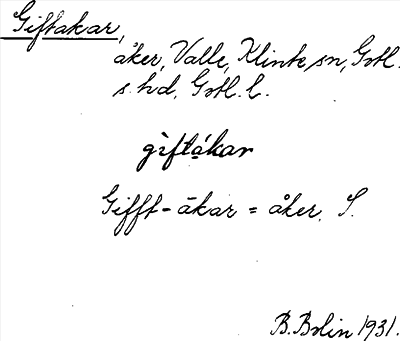 Giftakar,
åker, Valle, Klinte sn, Gotl.
s. hd, Gotl. l.
giftákar
Gifft-åkar = åker. S.
B. Bolin 1931.